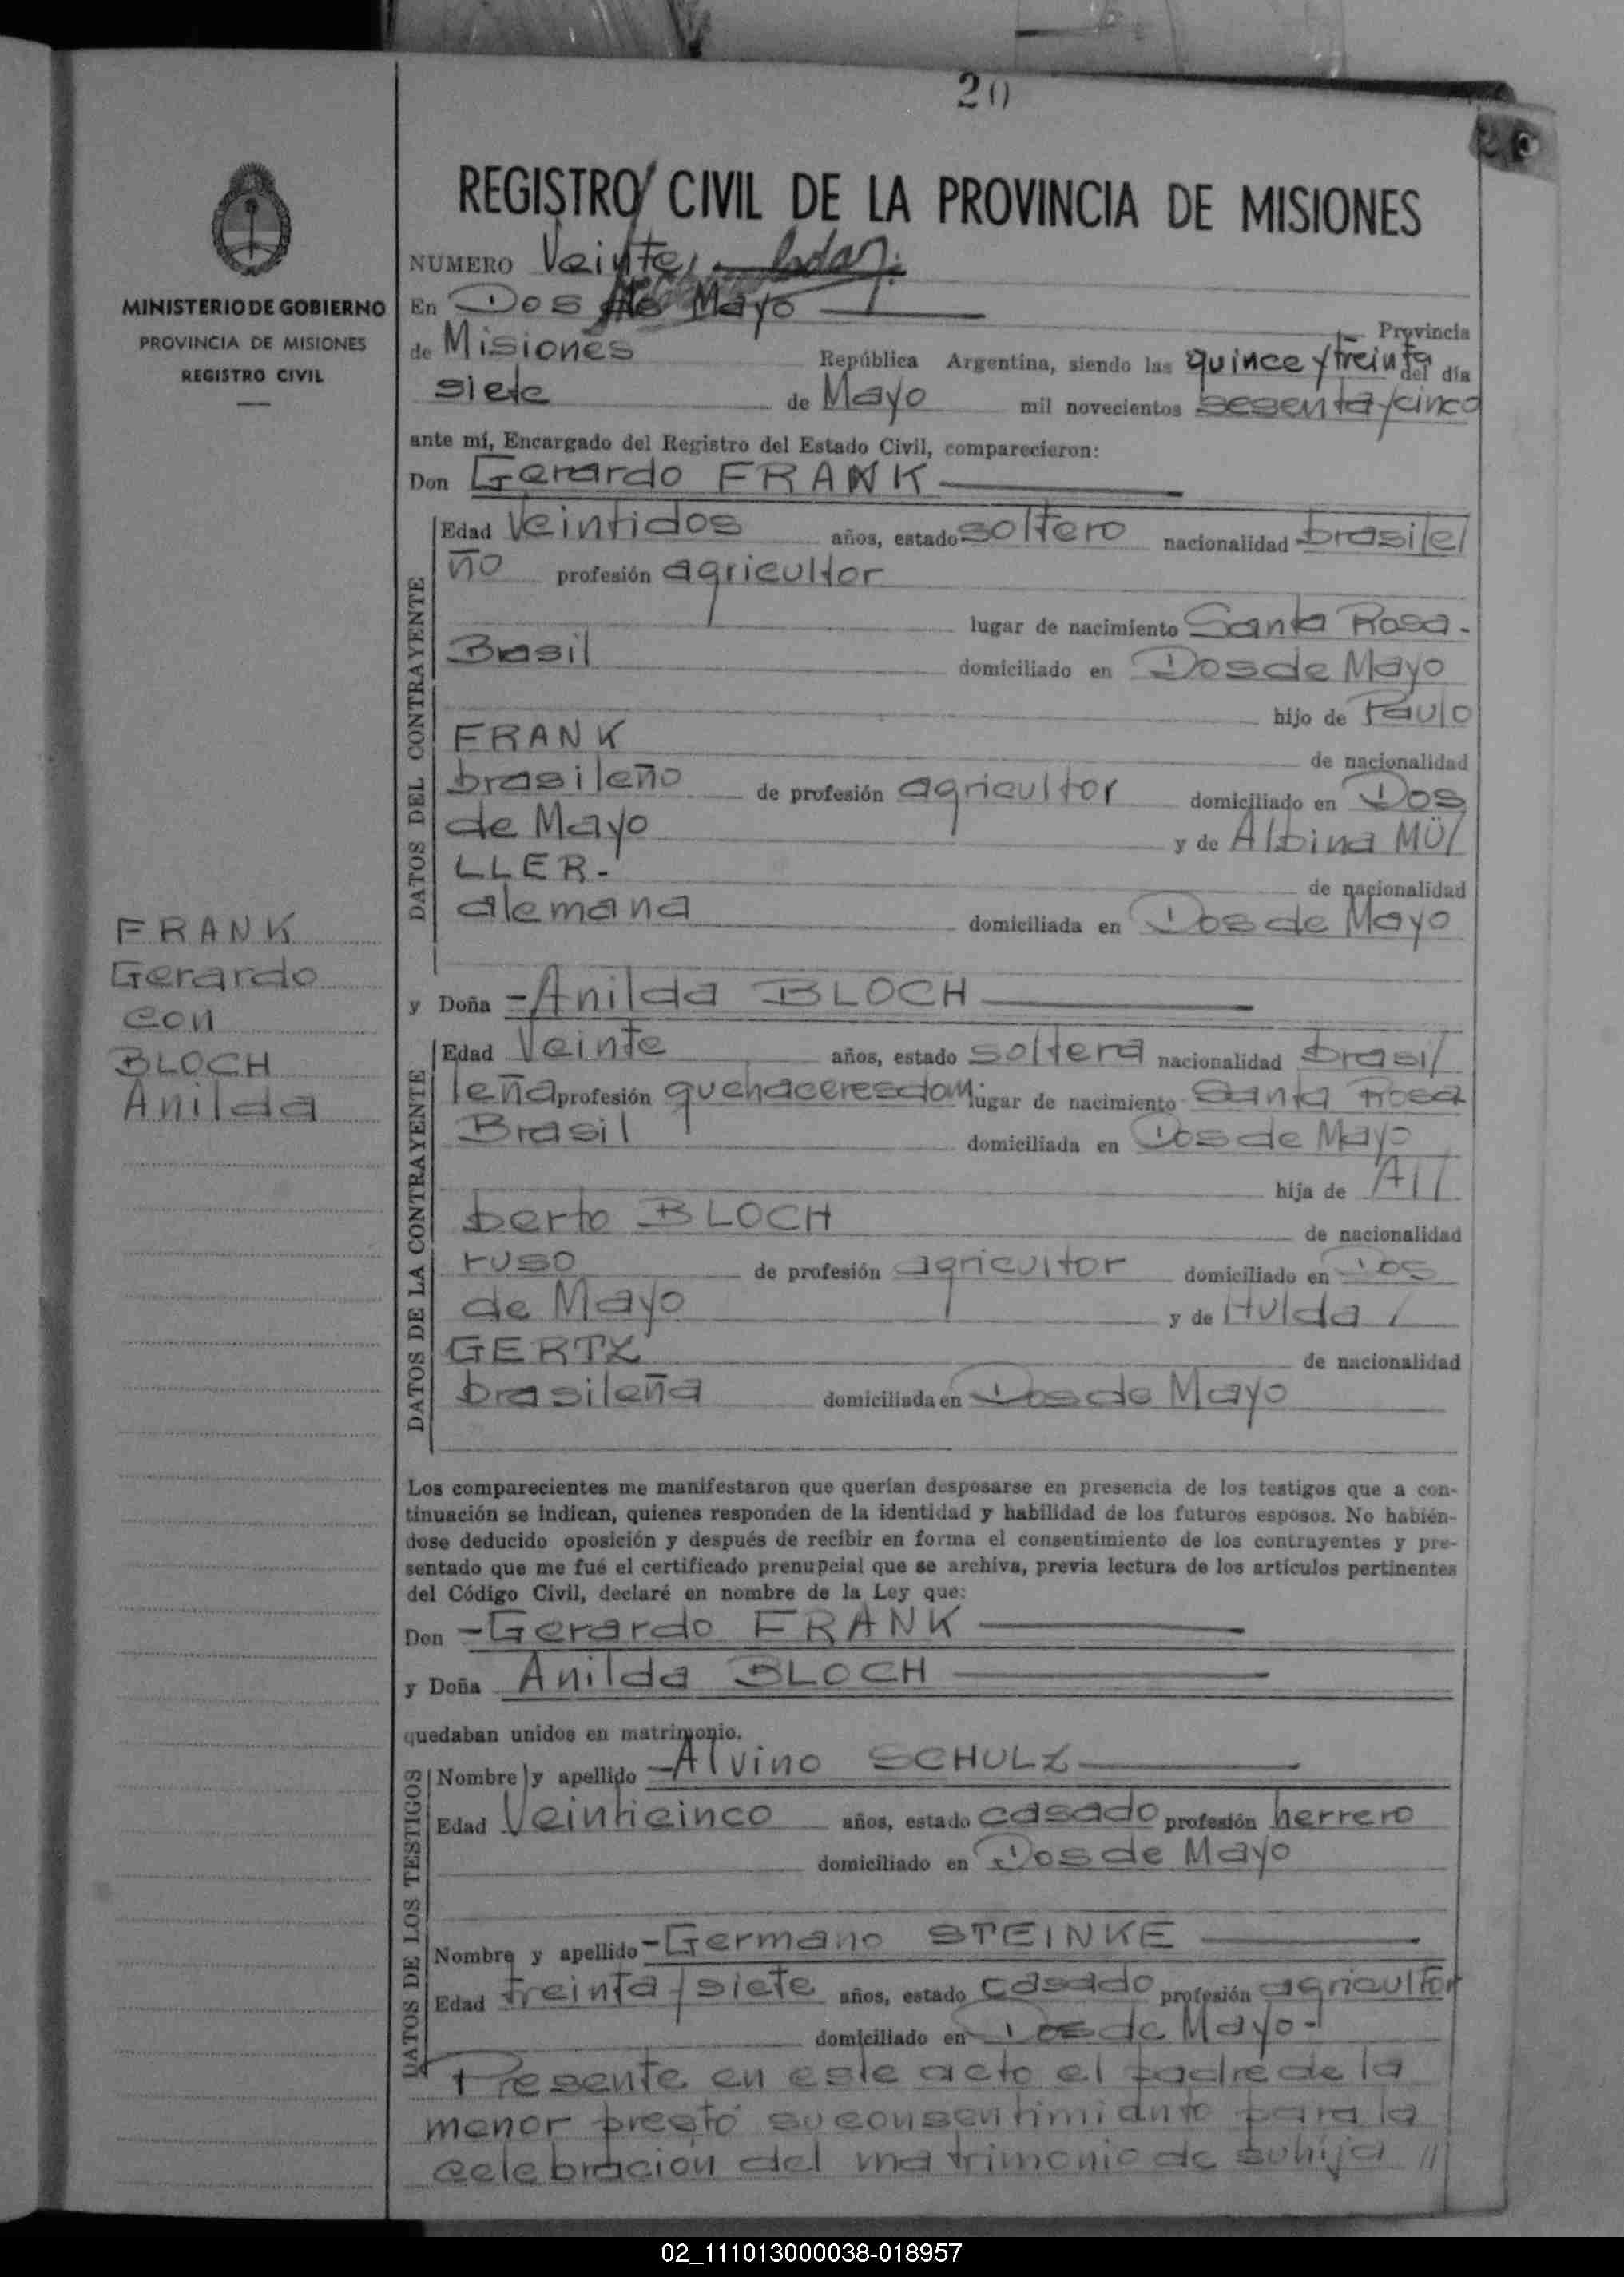 20
REGISTRO CIVIL DE LA PROVINCIA DE MISIONES
MINISTERIO DE GOBIERNO
PROVINCIA DE MISIONES
REGISTRO CIVIL
NUMERO Veinte,
En Dos de Mayo Provincia
de Misiones República Argentina, siendo las quince y treinta del día
siete de Mayo mil novecientos sesenta y cinco
ante mí, Encargado del Registro del Estado Civil, comparecieron:
Don Gerardo FRANK
DATOS DEL CONTRAYENTE
Edad Veintidos años, estado soltero nacionalidad brasile/
ño profesión agricultor
lugar de nacimiento Santa Rosa-
Brasil domiciliado en Dos de Mayo
hijo de Paulo
FRANK de nacionalidad
brasileño de profesión agricultor domiciliado en Dos
de Mayo y de Albina MÜ/
LLER- de nacionalidad
alemana domiciliada en Dos de Mayo
FRANK
Gerardo
con
BLOCH
Anilda
y Doña -Anilda BLOCH
DATOS DE LA CONTRAYENTE
Edad Veinte años, estado soltera nacionalidad brasi/
leña profesión quehaceresdom: lugar de nacimiento Santa Rosa
Brasil domiciliada en Dos de Mayo
hija de Al/
berto BLOCH de nacionalidad
ruso de profesión agricultor domiciliado en Dos
de Mayo y de Hulda /
GERTZ de nacionalidad
brasileña domiciliada en Dos de Mayo
Los comparecientes me manifestaron que querían desposarse en presencia de los testigos que a con-
tinuación se indican, quienes responden de la identidad y habilidad de los futuros esposos. No habién-
dose deducido oposición y después de recibir en forma el consentimiento de los contrayentes y pre-
sentado que me fué el certificado prenupcial que se archiva, previa lectura de los artículos pertinentes
del Código Civil, declaré en nombre de la Ley que:
Don -Gerardo FRANK
y Doña Anilda BLOCH
quedaban unidos en matrimonio.
DATOS DE LOS TESTIGOS
Nombre y apellido -Alvino SCHULZ
Edad Veinticinco años, estado casado profesión herrero
domiciliado en Dos de Mayo
Nombre y apellido -Germano STEINKE
Edad treinta y siete años, estado casado profesión agricultor
domiciliado en Dos de Mayo-
Presente en este acto el padre de la
menor prestó su consentimiento para la
celebración del matrimonio de su hija //
02_111013000038-018957